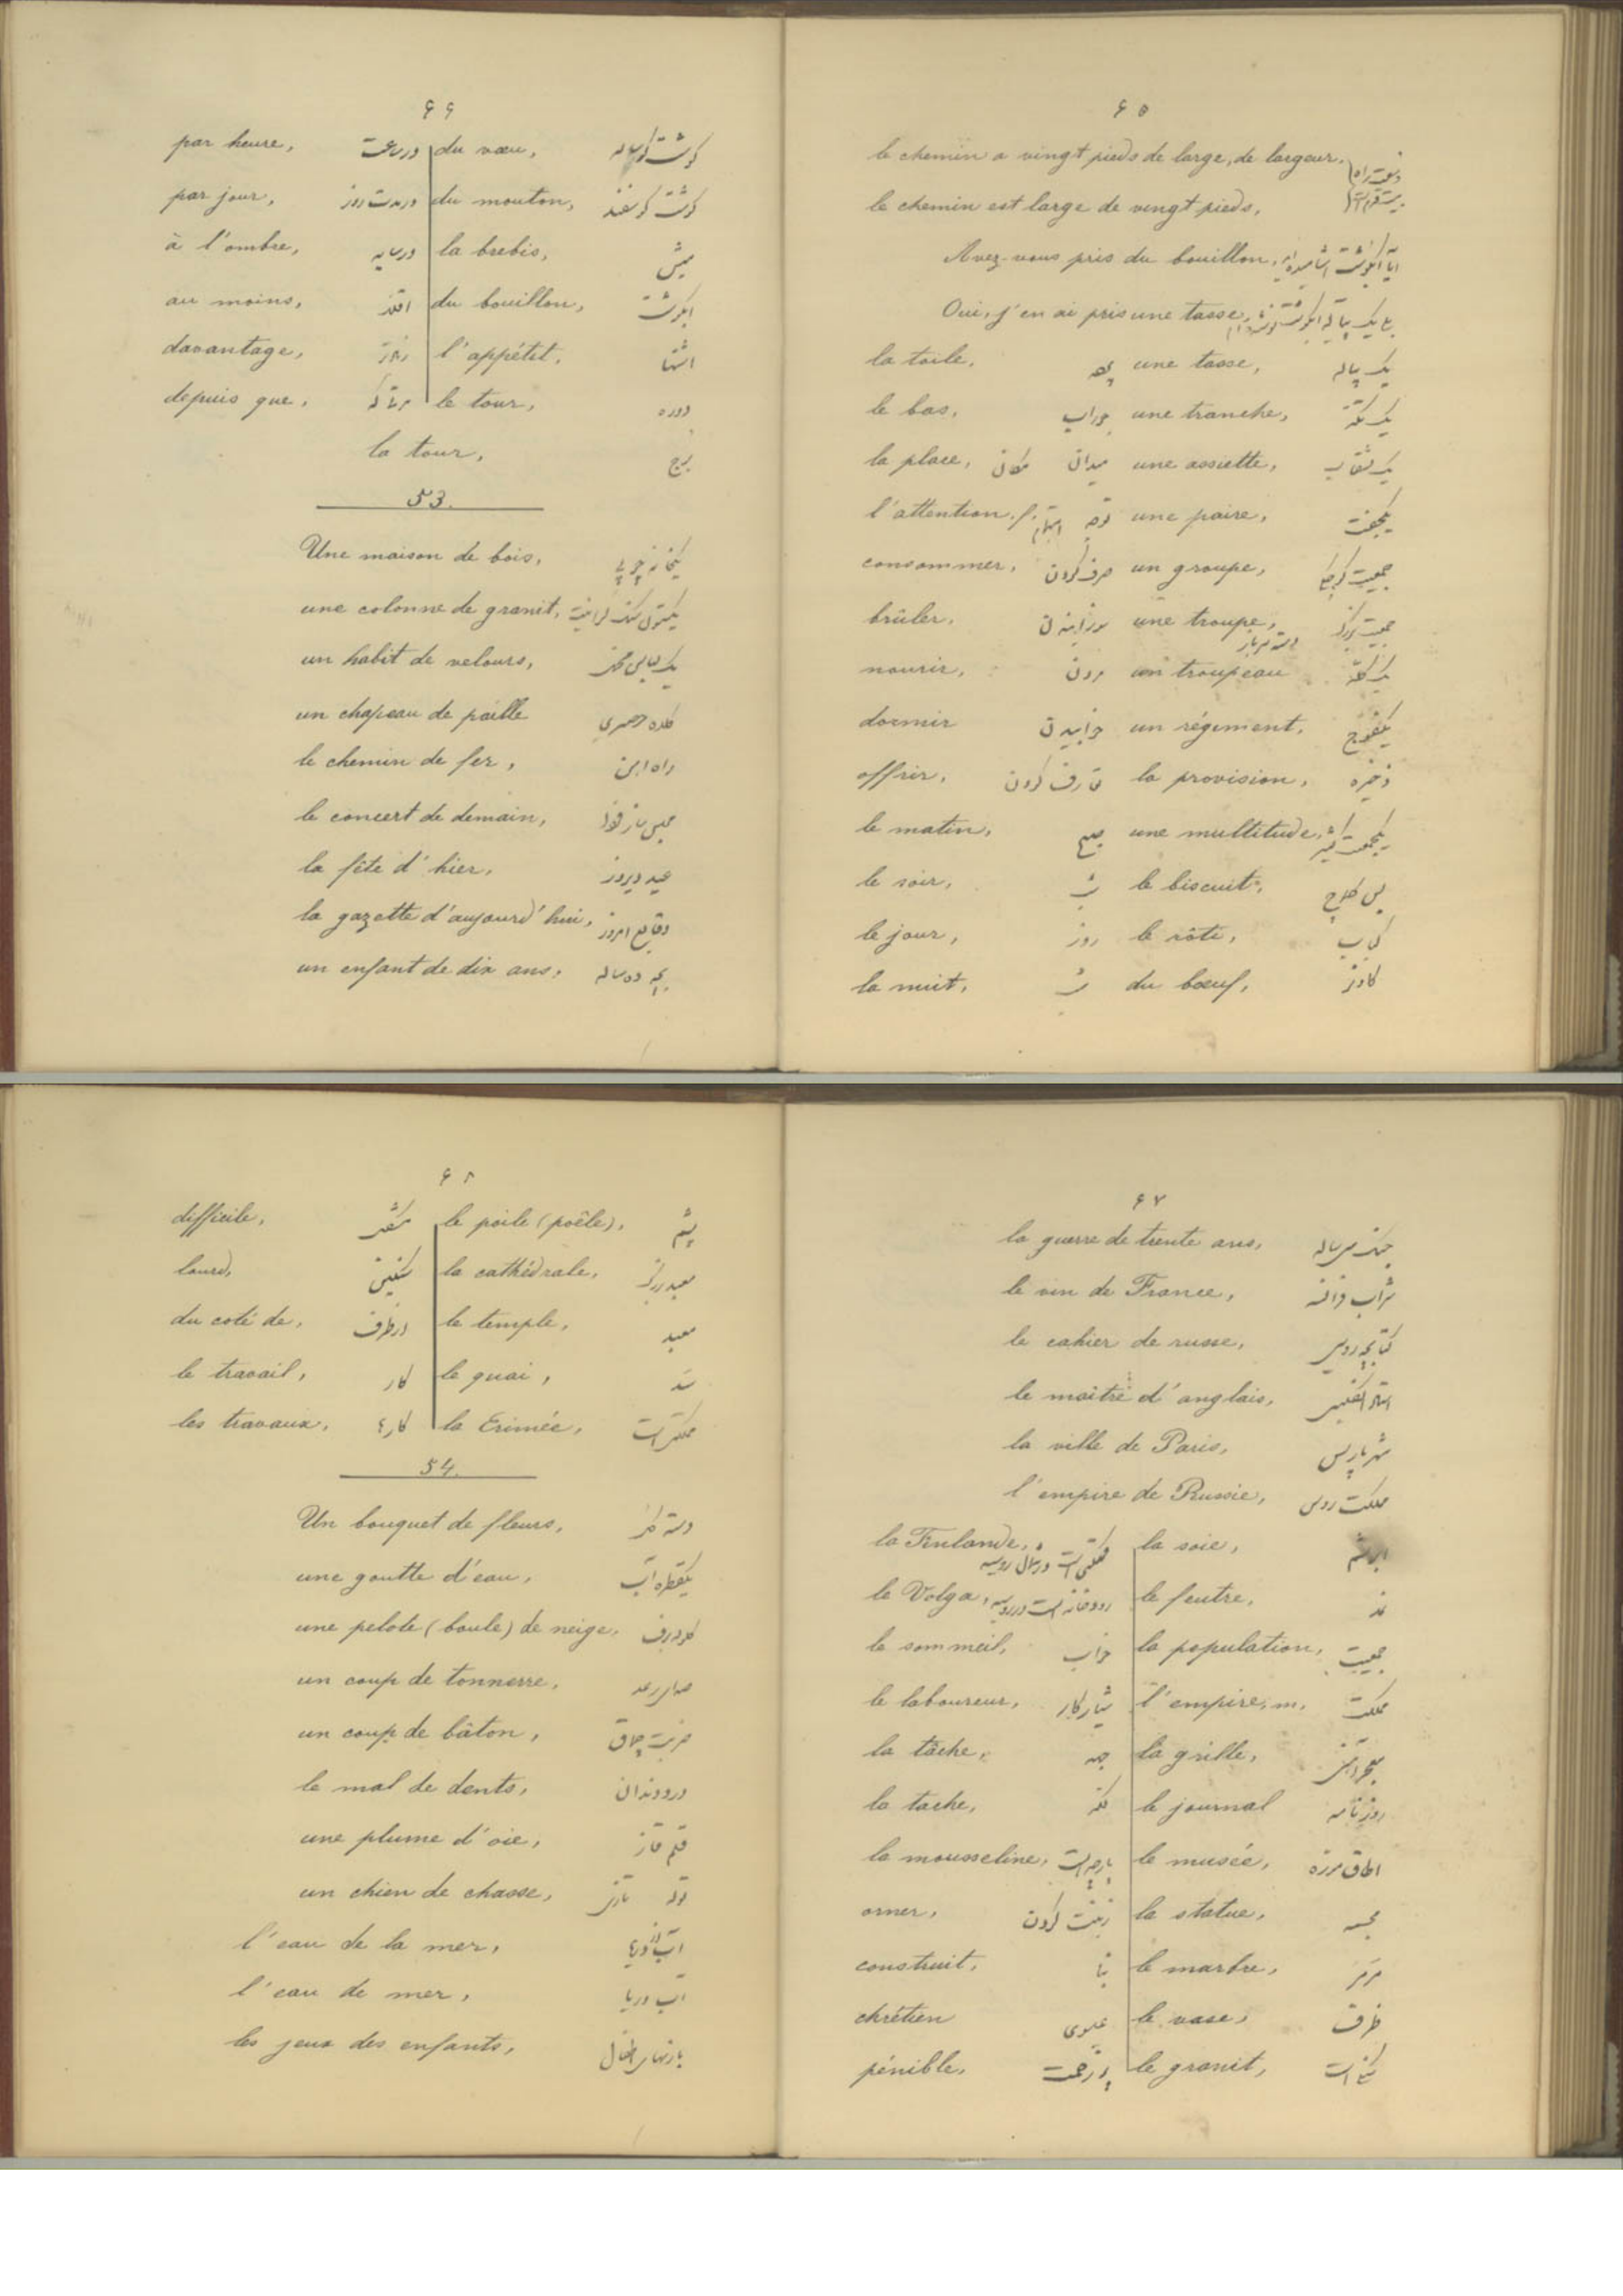 ۶۵
le chemin a vingt pieds de large, de largeur.
le chemin est large de vingt pieds,
Avez-vous pris du bouillon,
Oui, j'en ai pris une tasse,
la toile, une tasse, یک پیاله
le bas, جوراب une tranche, یک تکه
la place, میدان مکان une assiette, یک بشقاب
l'attention. f. توجه une paire, یکجفت
consommer, صرف کردن un groupe,
brûler, سوزانیدن une troupe,
دسته سرباز
nourir, un troupeau یک گله
dormir خوابیدن un régiment, یکفوج
offrir, تعارف کردن la provision, ذخیره
le matin, صبح une multitude,
le soir, شب le biscuit,
le jour, روز le rôti, کباب
la nuit, شب du bœuf,
۶۶
par heure, در ساعت du vœu, گوشت گوساله
par jour, در مدت روز du mouton, گوشت گوسفند
à l'ombre, در سایه la brebis, میش
au moins, اقلاً du bouillon, ابگوشت
davantage, l'appétit, اشتها
depuis que, le tour, دوره
la tour, برج
53.
Une maison de bois,
une colonne de granit,
un habit de velours, یک لباس مخمل
un chapeau de paille کلاه حصیری
le chemin de fer, راه اهن
le concert de demain,
la fête d'hier, عید دیروز
la gazette d'aujourd'hui, وقایع امروز
un enfant de dix ans, بچه ده ساله
۶۷
la guerre de trente ans, جنک سی ساله
le vin de France, شراب فرانسه
le cahier de russe, کتابچه روسی
le maître d'anglais,
la ville de Paris, شهر پاریس
l'empire de Russie, مملکت روس
la Finlande, مملکتی است در شمال روسیه la soie, ابریشم
le Volga, رودخانه است در روسیه le feutre, نمد
le sommeil, خواب la population, جمعیت
le laboureur, شیارکار l'empire, m. مملکت
la tâche, la grille,
la tache, لکه le journal روزنامه
la mousseline, پارچه است le musée, اطاق موزه
orner, زینت کردن la statue, مجسمه
construit, بنا le marbre, مرمر
chrétien عیسوی le vase, ظرف
pénible, پر زحمت le granit,
۶۸
difficile, le poile (poêle),
lourd, سنگین la cathédrale, معبد بزرک
du coté de, در طرف le temple, معبد
le travail, کار le quai, سد
les travaux, کارها la Crimée,
54.
Un bouquet de fleurs, دسته گل
une goutte d'eau, یکقطره آب
une pelote (boule) de neige,
un coup de tonnerre, صدای رعد
un coup de bâton, ضربت چماق
le mal de dents, درد دندان
une plume d'oie, قلم قاز
un chien de chasse, توله تازی
l'eau de la mer,
l'eau de mer, آب دریا
les jeux des enfants, بازیهای اطفال